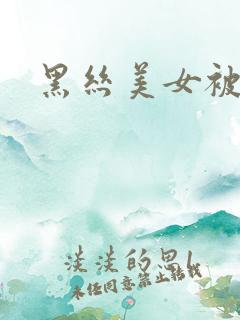 黑丝美女被
淡淡的思
未经同意禁止转载